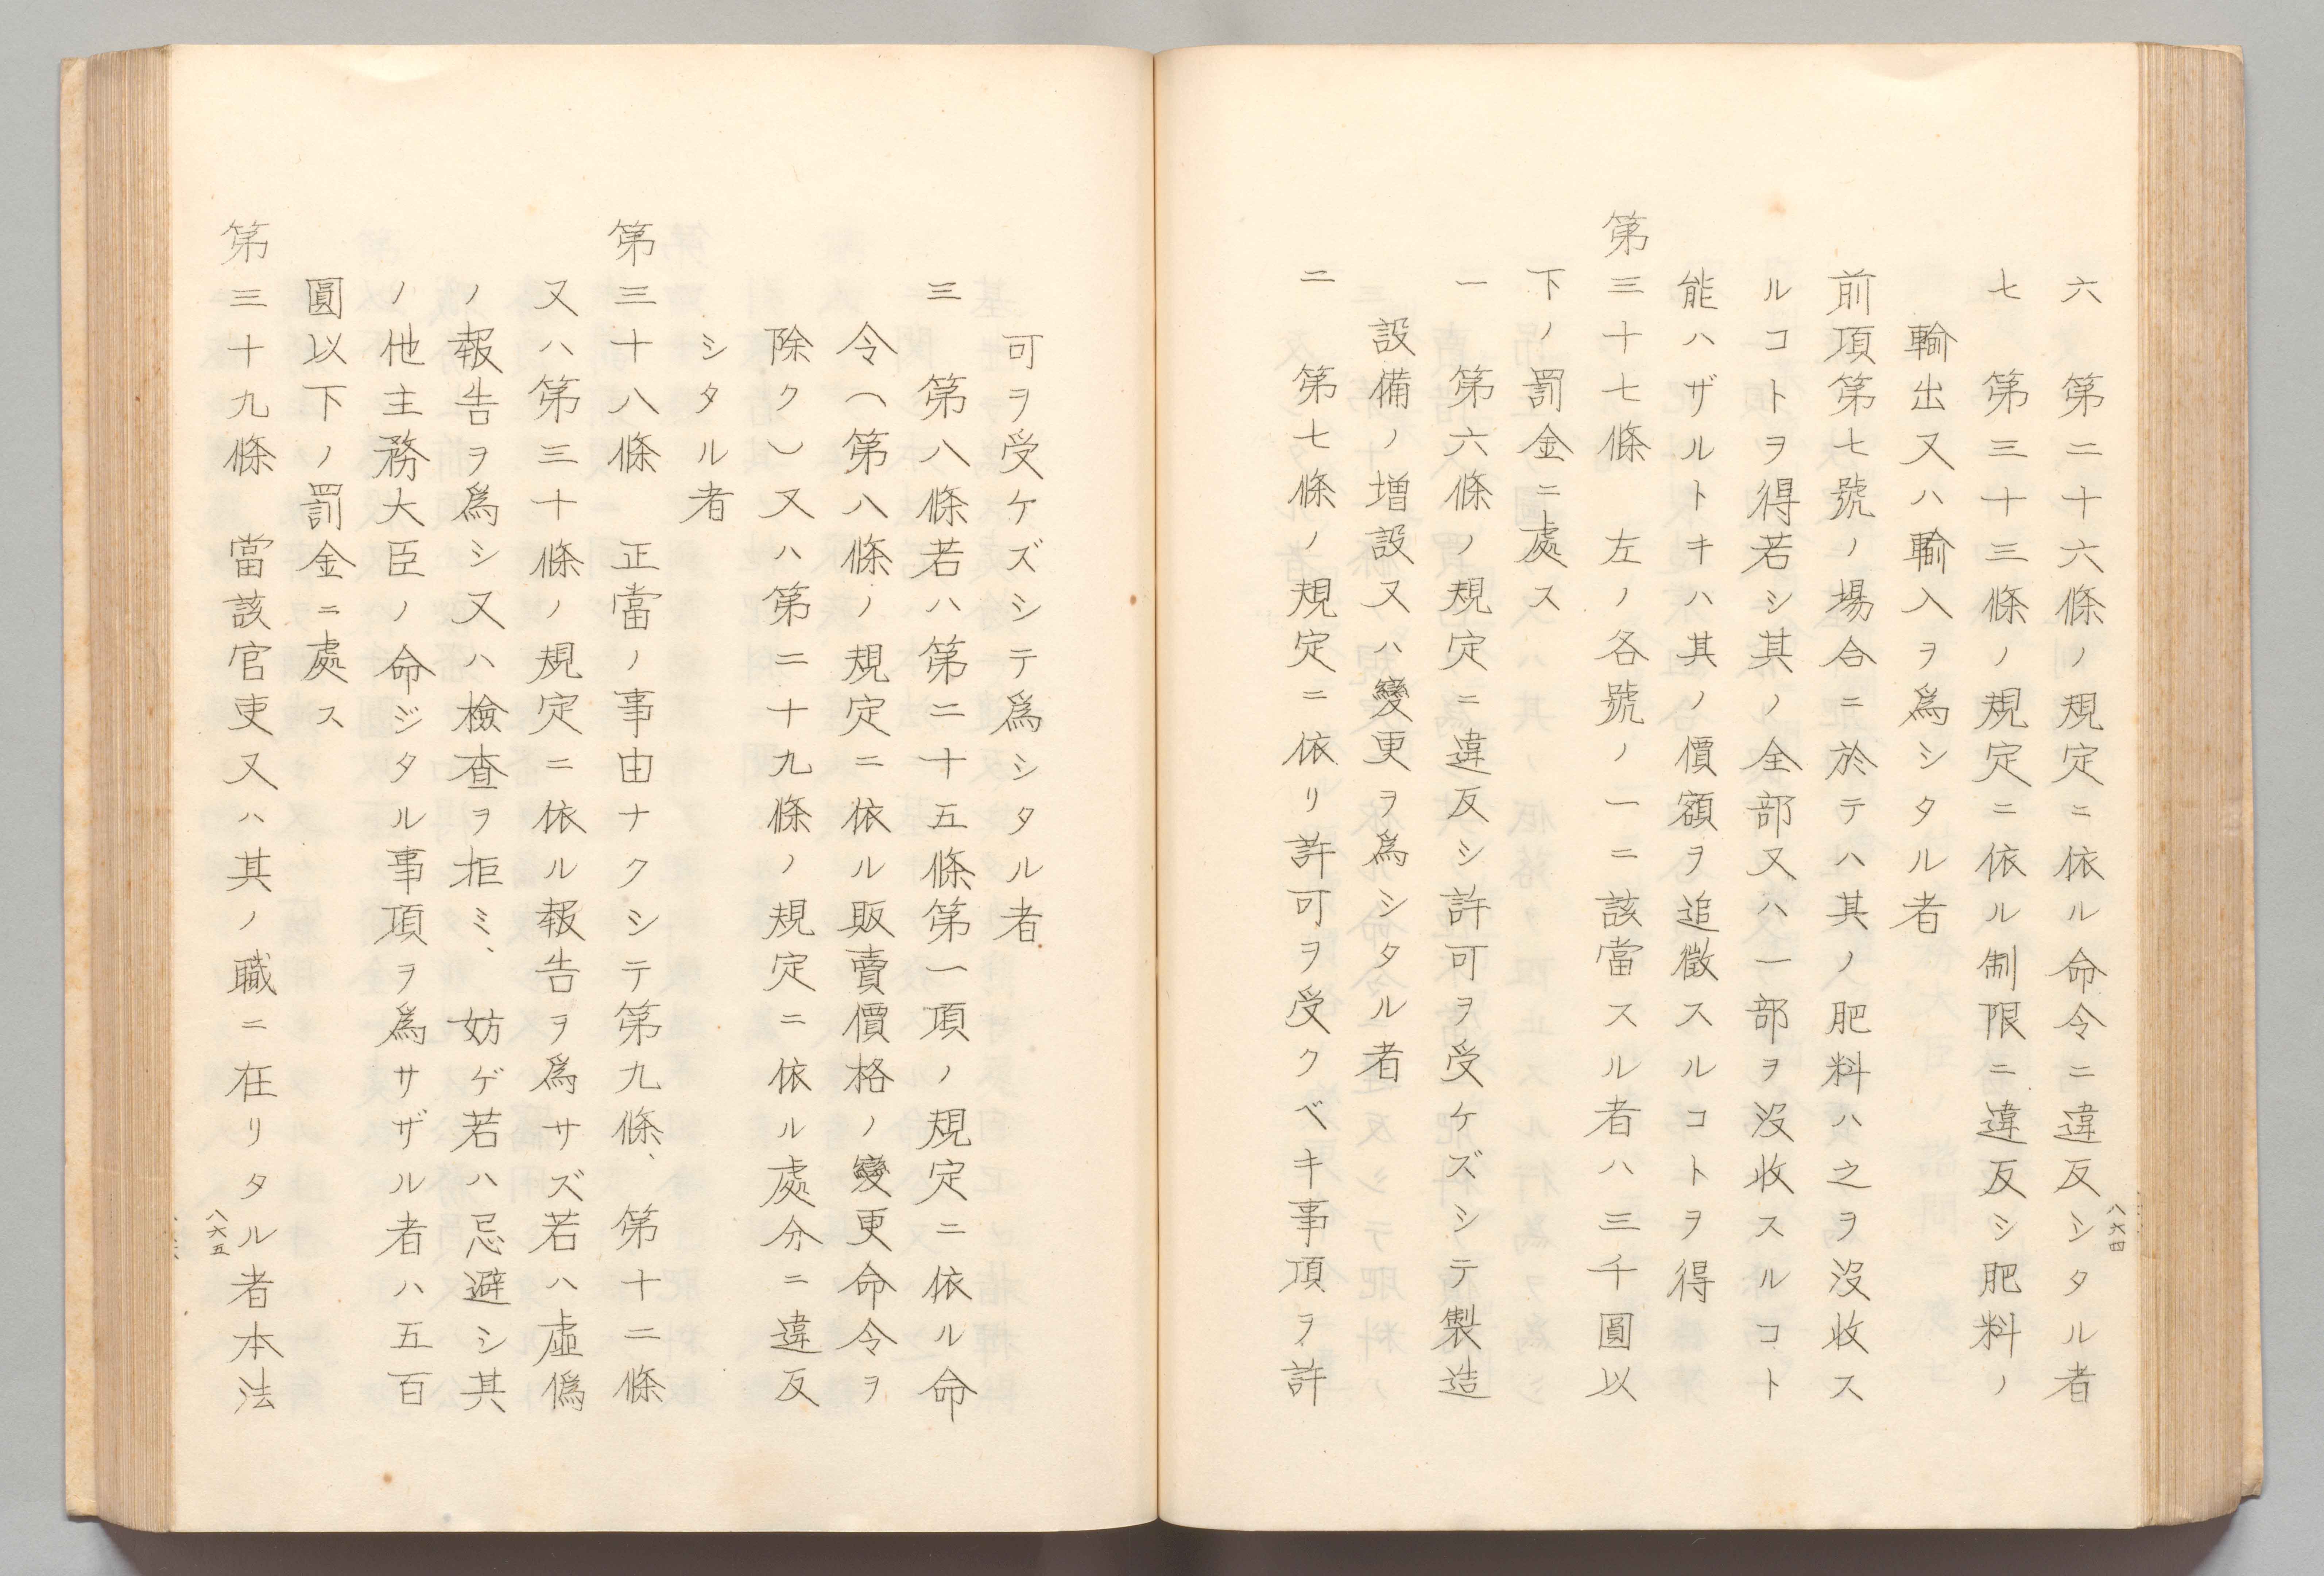 六　第二十六條ノ規定ニ依ル命令ニ違反シタル者
七　第三十三條ノ規定ニ依ル制限ニ違反シ肥料ノ
輸出又ハ輸入ヲ爲シタル者
前項第七號ノ場合ニ於テハ其ノ肥料ハ之ヲ沒收ス
ルコトヲ得若シ其ノ全部又ハ一部ヲ沒收スルコト
能ハザルトキハ其ノ價額ヲ追徵スルコトヲ得
第三十七條　左ノ各號ノ一ニ該當スル者ハ三千圓以
下ノ罰金ニ處ス
一　第六條ノ規定ニ違反シ許可ヲ受ケズシテ製造
設備ノ增設又ハ變更ヲ爲シタル者
二　第七條ノ規定ニ依リ許可ヲ受クベキ事項ヲ許
八六四
可ヲ受ケズシテ爲シタル者
三　第八條若ハ第二十五條第一項ノ規定ニ依ル命
令（第八條ノ規定ニ依ル販賣價格ノ變更命令ヲ
除ク）又ハ第二十九條ノ規定ニ依ル處分ニ違反
シタル者
第三十八條　正當ノ事由ナクシテ第九條、第十二條
又ハ第三十條ノ規定ニ依ル報告ヲ爲サズ若ハ虛僞
ノ報告ヲ爲シ又ハ檢查ヲ拒ミ、妨ゲ若ハ忌避シ其
ノ他主務大臣ノ命ジタル事項ヲ爲サザル者ハ五百
圓以下ノ罰金ニ處ス
第三十九條　當該官吏又ハ其ノ職ニ在リタル者本法
八六五